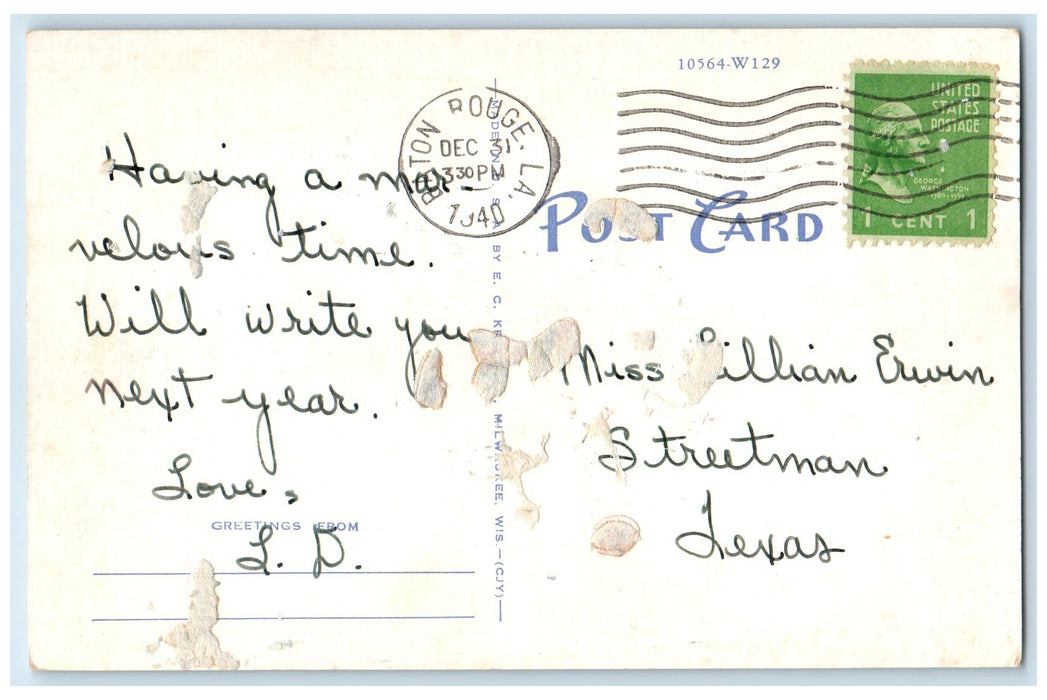 10564-W129
BATON ROUGE, LA.
DEC 31
3 30 PM
1940
UNITED
STATES
POSTAGE
GEORGE
WASHINGTON
1789-1797
1 CENT 1
POST CARD
Having a mar-
velous time.
Will write you
next year.
Love,
GREETINGS FROM
L. D.
MADE IN U. S. A. BY E. C. MILWAUKEE, WIS.—(CJY)
Miss Lillian Erwin
Streetman
Texas